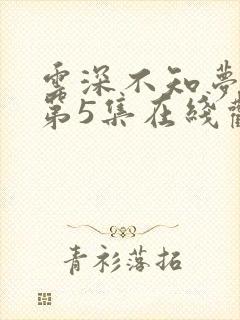 雲深不知夢
第5集在綫觀
青衫落拓